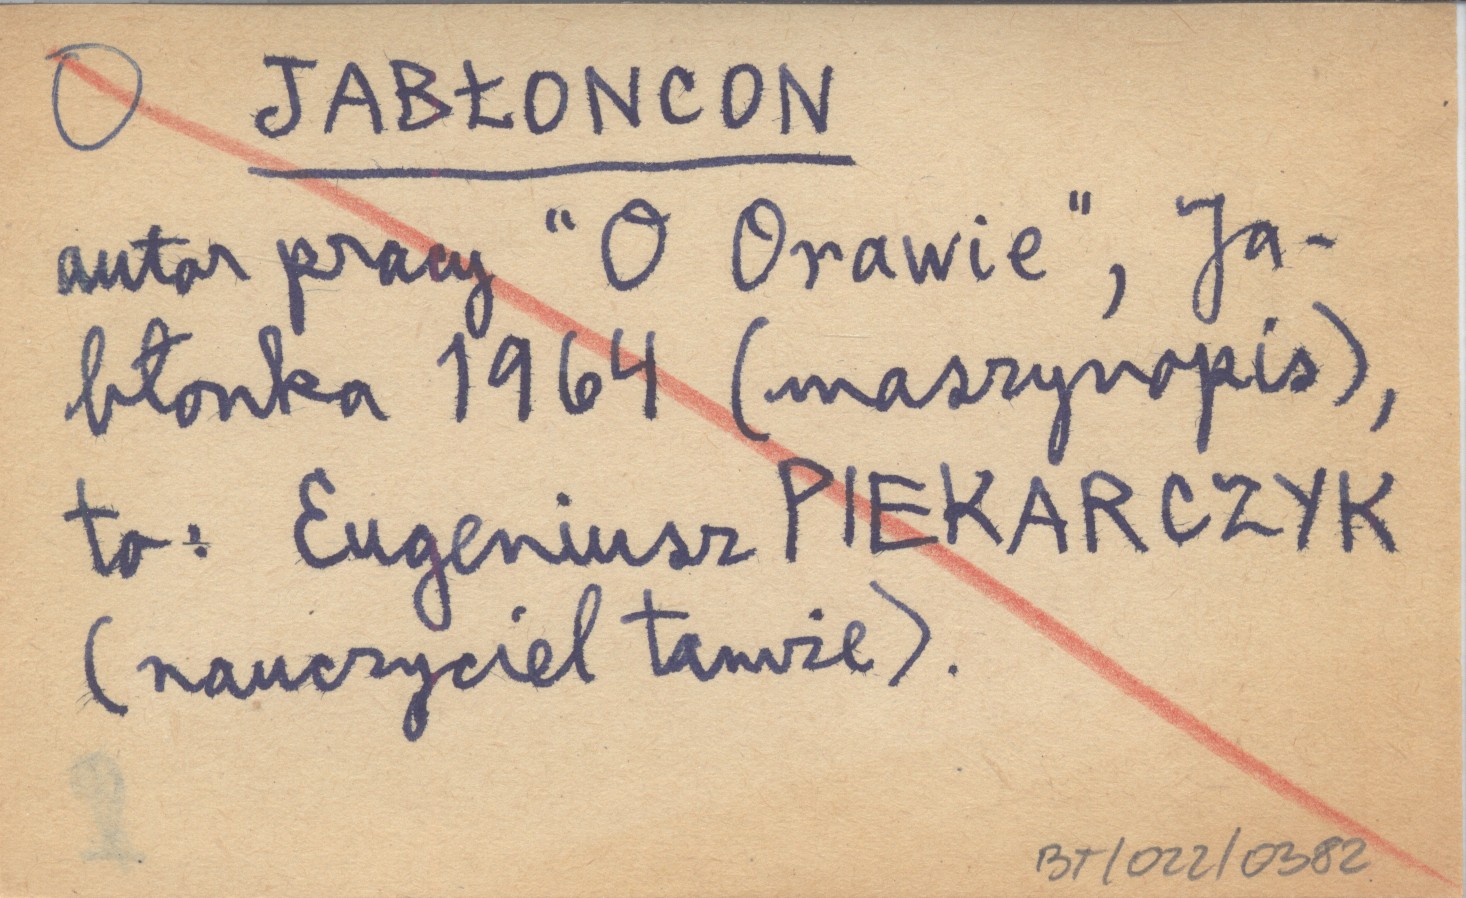 O JABŁONCON
autor pracy "O Orawie", Ja-
błonka 1964 (maszynopis),
to: Eugeniusz PIEKARCZYK
(nauczyciel tamże).
BT/022/0382